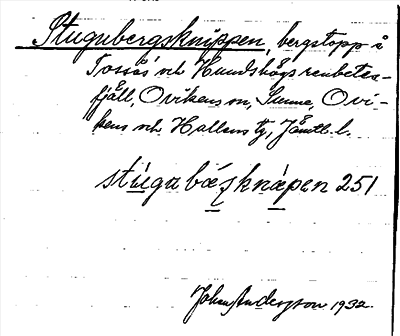 Stugubergsknippen, bergstopp i
Tossås och Hundshögs renbetes-
fjäll, Ovikens m, Sunne, Ovi-
kens och Hallens tg, Jämtl. l.
stúgubárzknápen 251
John Anderson 1932.